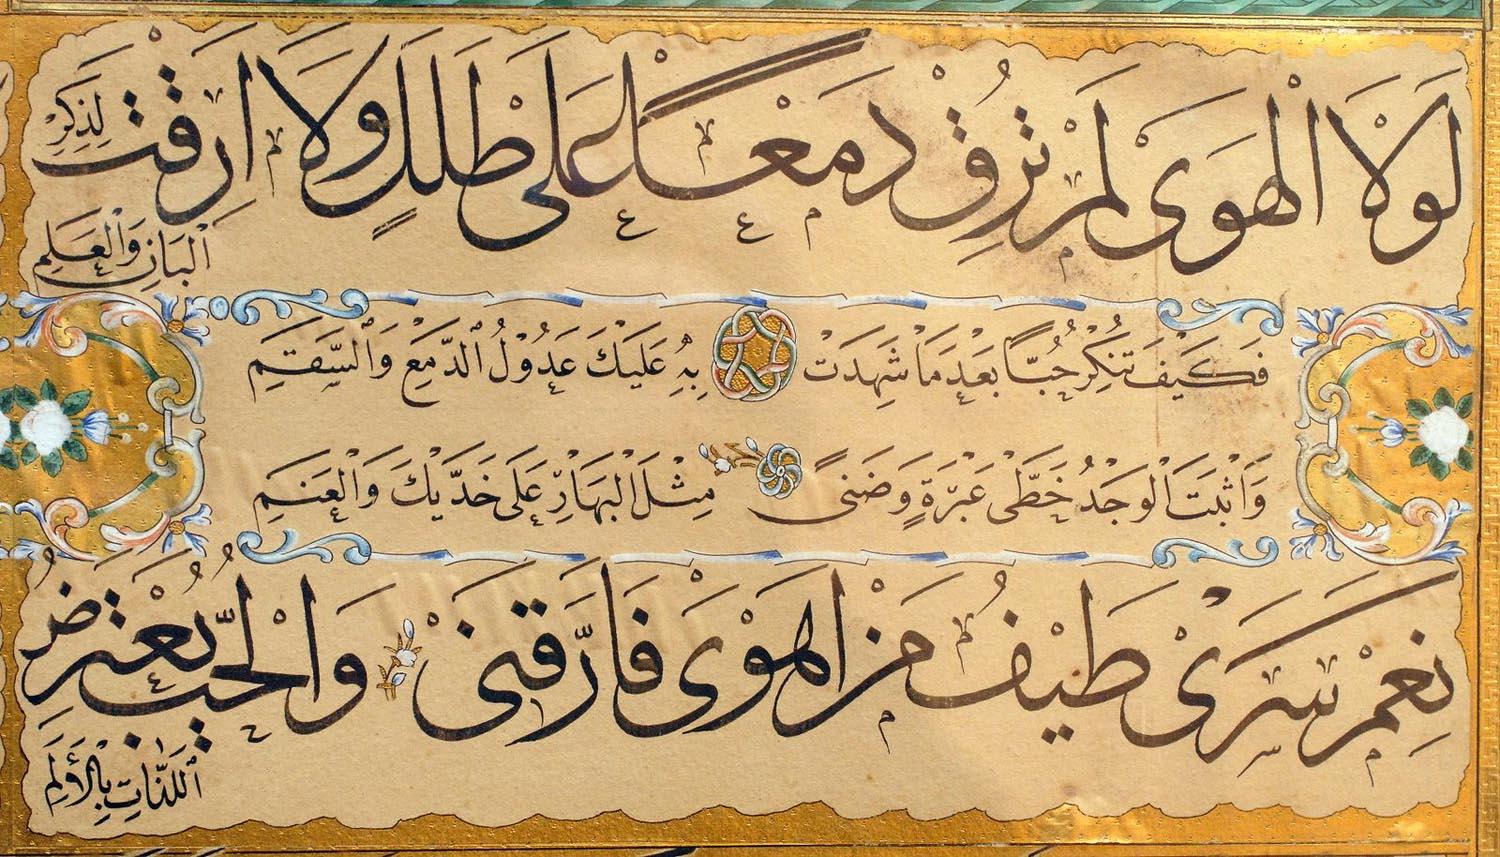 لَوْلَا الْهَوَى لَمْ تُرِقْ دَمْعًا عَلَى طَلَلٍ وَلَا اَرِقْتَ لِذِكْرِ
الْبَانِ وَالْعَلَمِ
فَكَيْفَ تُنْكِرُ حُبًّا بَعْدَ مَا شَهِدَتْ بِهِ عَلَيْكَ عُدُولُ الدَّمْعِ وَالسَّقَمِ
وَاَثْبَتَ الْوَجْدُ خَطَّيْ عَبْرَةٍ وَضَنىً مِثْلَ الْبَهَارِ عَلَى خَدَّيْكَ وَالْعَنَمِ
نَعَمْ سَرَى طَيْفُ مَنْ اَهْوَى فَاَرَّقَنِى وَالْحُبُّ يَعْتَرِضُ
اللَّذَّاتِ بِالْأَلَمِ